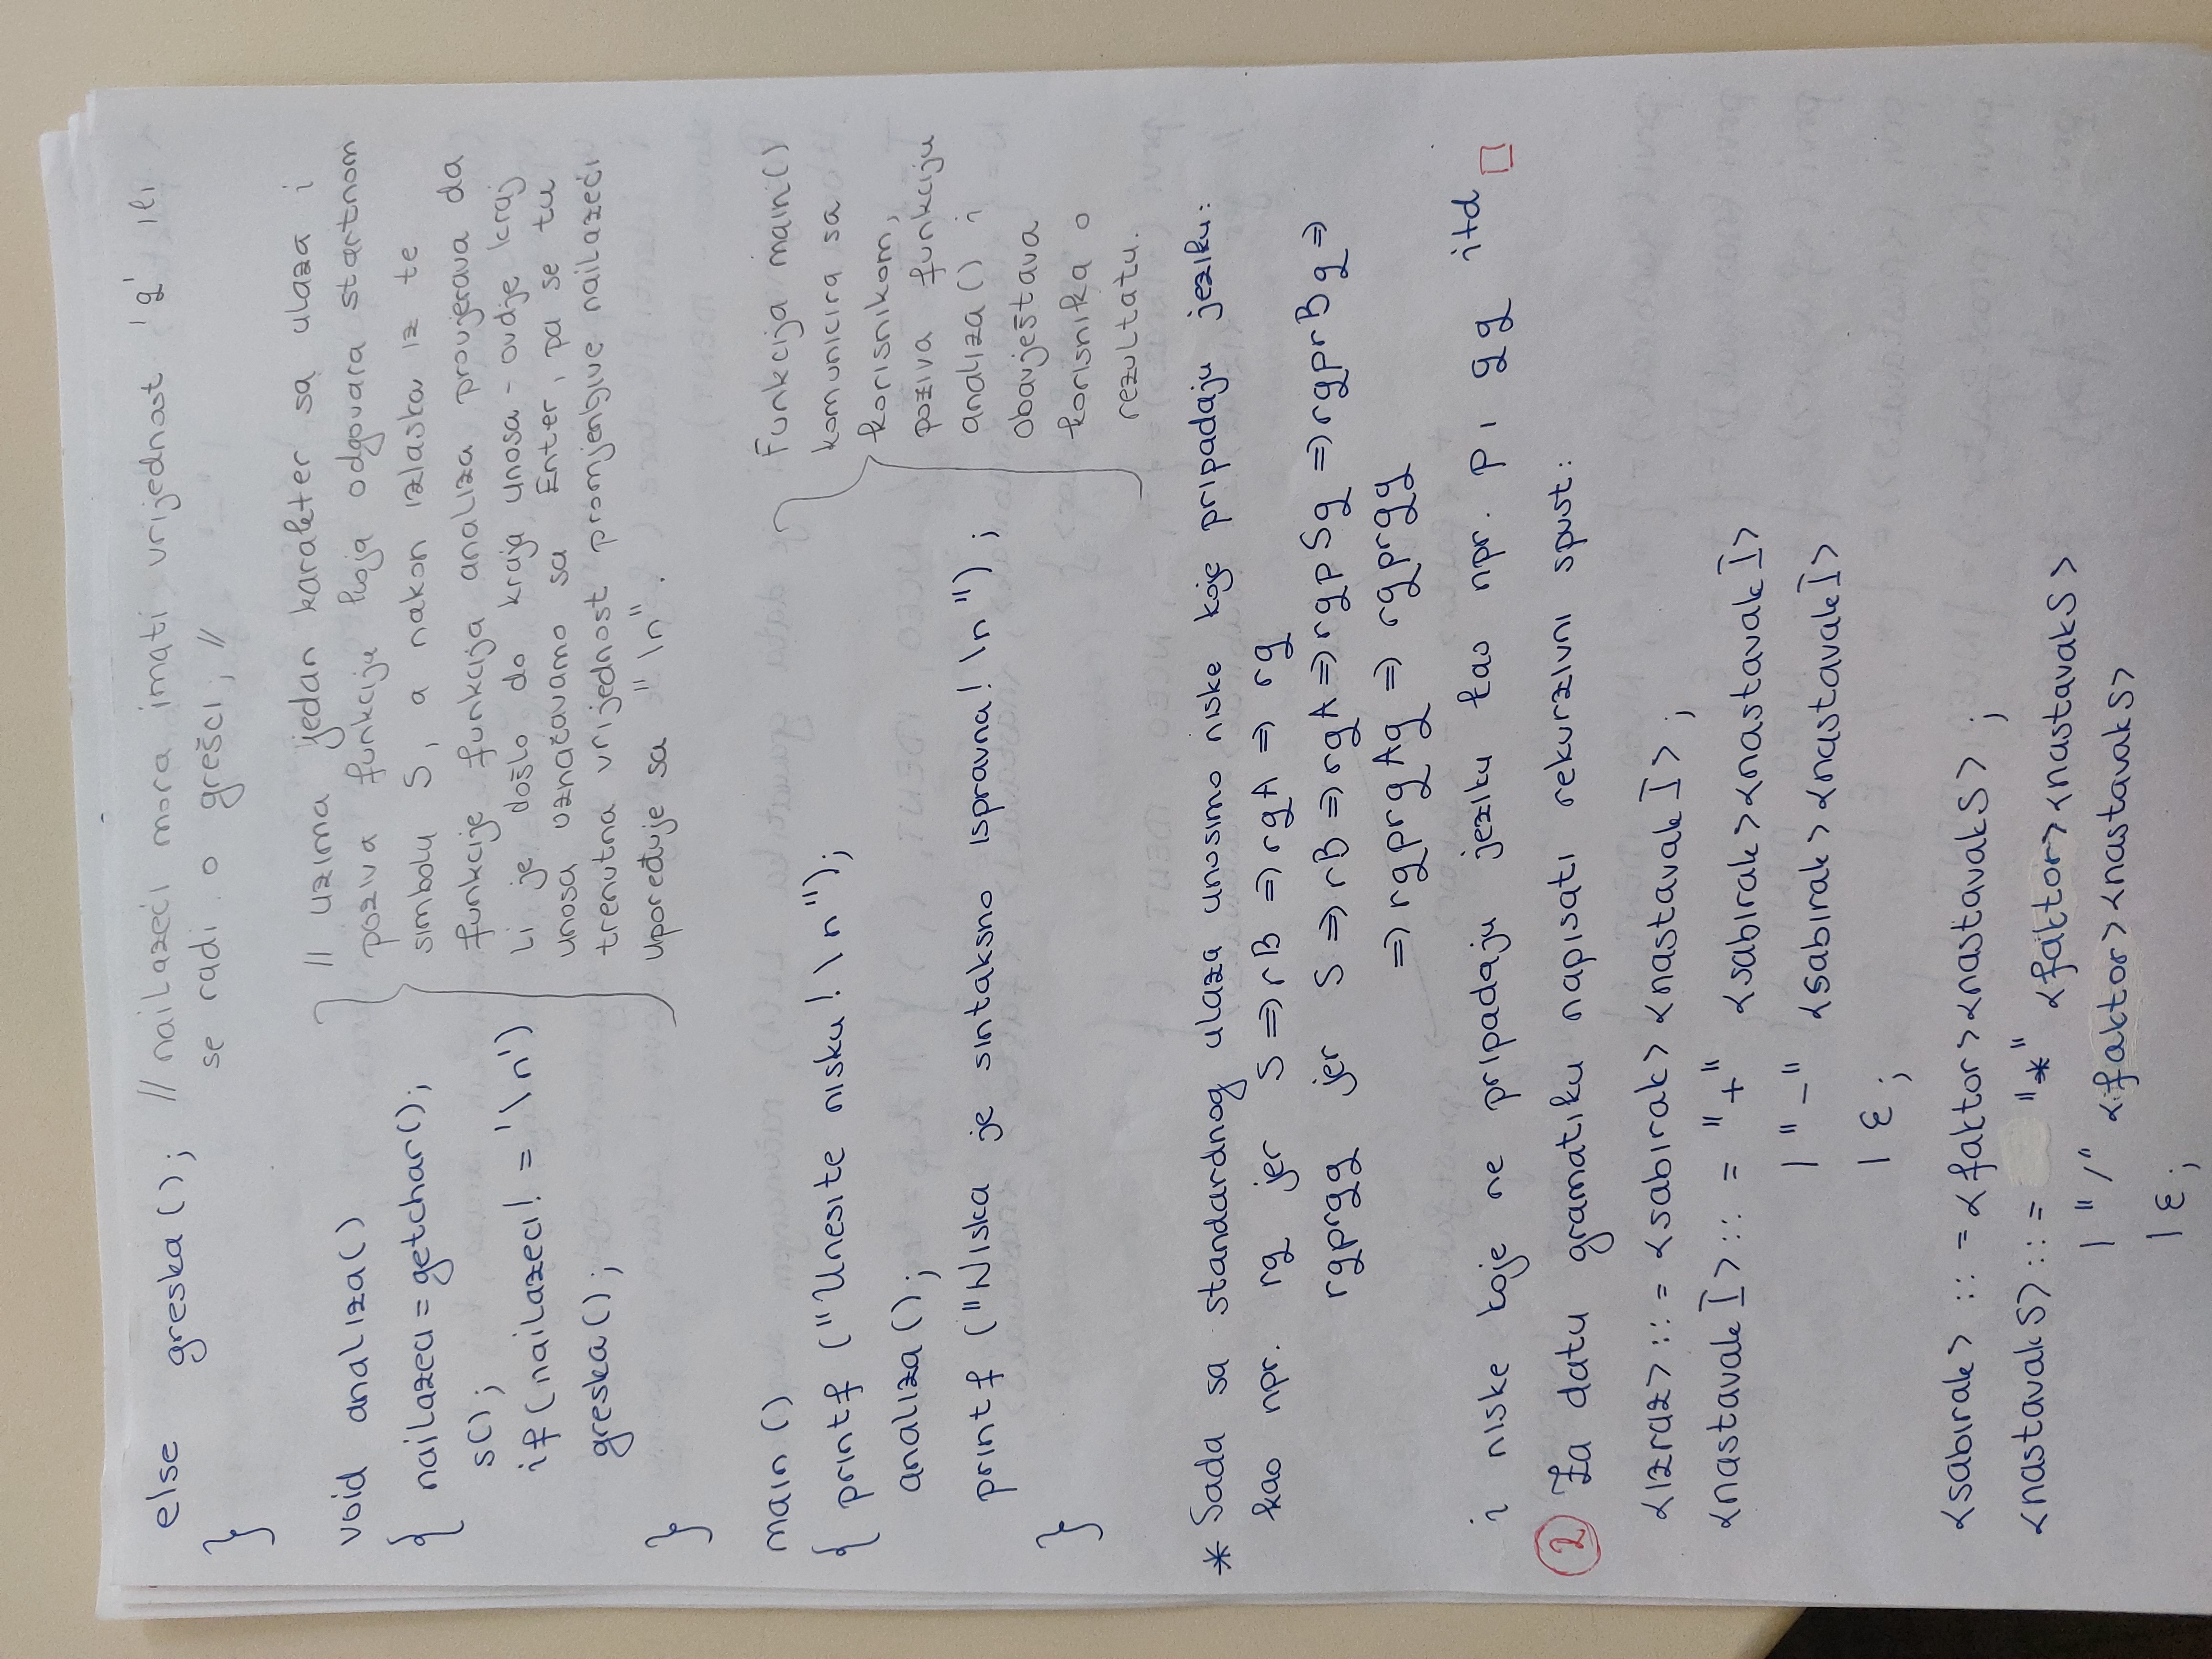 else greska(); // nailazeći mora imati vrijednost 'g' ili
se radi o grešci; //
}
void analiza()
{ nailazeci = getchar();
s();
if(nailazeci! = '\n')
greska();
}
// uzima jedan karakter sa ulaza i
poziva funkciju koja odgovara startnom
simbolu S, a nakon izlaska iz te
funkcije funkcija analiza provjerava da
li je došlo do kraja unosa - ovdje kraj
unosa označavamo sa Enter, pa se tu
trenutna vrijednost promjenjive nailazeći
upoređuje sa "\n".
main()
{ printf ("Unesite nisku! \n");
analiza();
printf ("Niska je sintaksno ispravna! \n");
}
Funkcija main()
komunicira sa
korisnikom,
poziva funkciju
analiza() i
obavještava
korisnika o
rezultatu.
* Sada sa standardnog ulaza unosimo niske koje pripadaju jeziku:
kao npr. rg jer S ⇒ rB ⇒ rgA ⇒ rg
rgprgg jer S ⇒ rB ⇒ rgA ⇒ rgpSg ⇒ rgprBg ⇒
⇒ rgprgAg ⇒ rgprgg
i niske koje ne pripadaju jeziku kao npr. p, gg itd □
2 Za datu gramatiku napisati rekurzivni spust:
<izraz> ::= <sabirak><nastavak I> ;
<nastavak I> ::= "+" <sabirak><nastavak I>
| "-" <sabirak><nastavak I>
| ε ;
<sabirak> ::= <faktor><nastavak S> ;
<nastavak S> ::= "*" <faktor><nastavak S>
| "/" <faktor><nastavak S>
| ε ;